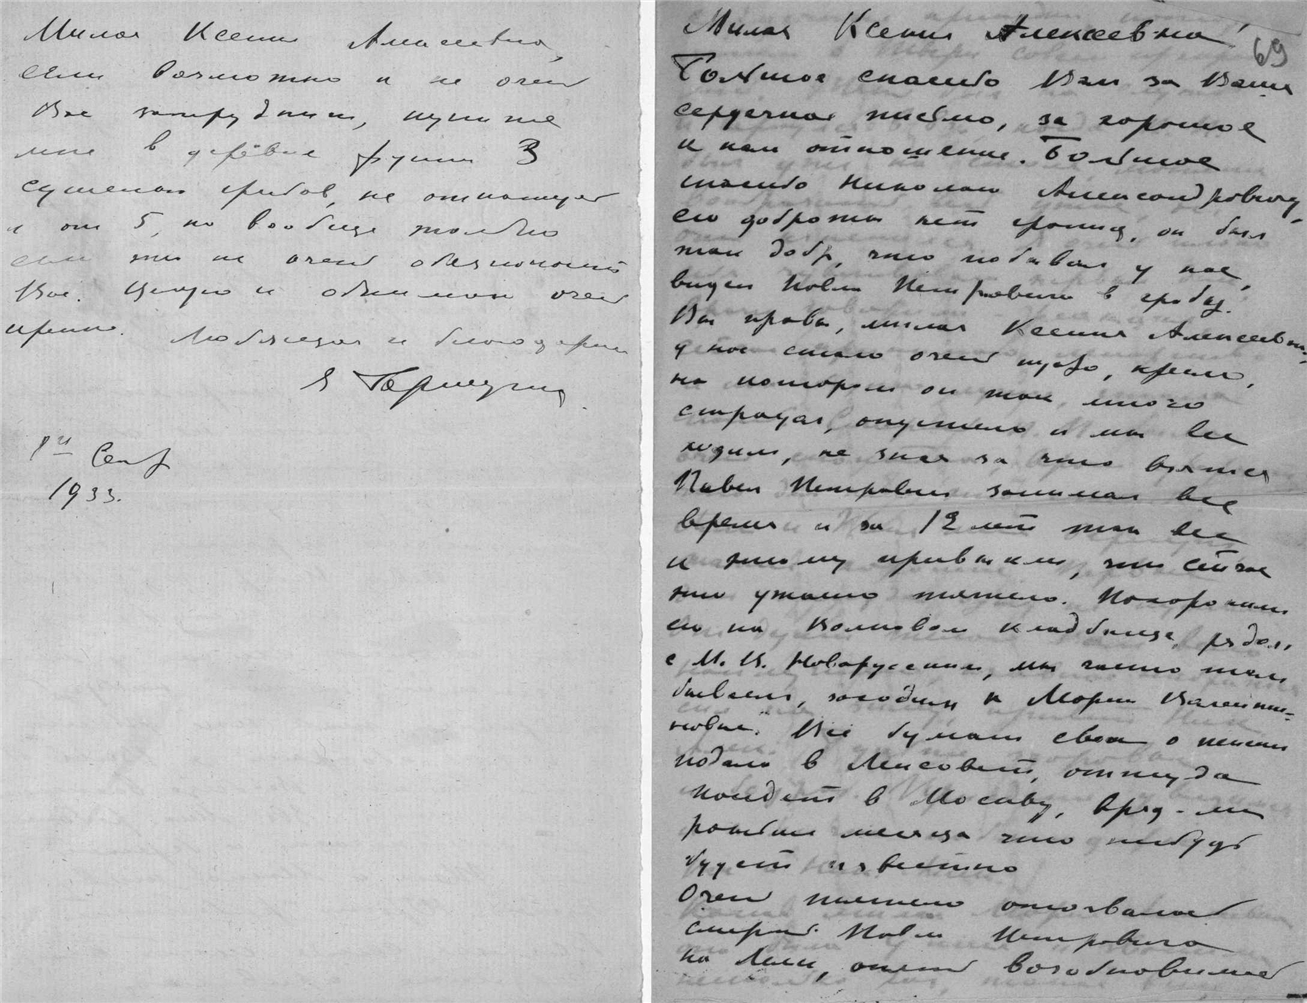 Милая Ксения Алексеевна,
если возможно и не очень
Вас затруднит, купите
мне в деревне фунта 3
сушеных грибов, не откажусь
и от 5, но вообще только
если это не очень обеспокоит
Вас. Целую и обнимаю очень
крепко. Любящая и благодарная
Я
1933.
Милая Ксения Алексеевна!
69
Большое спасибо Вам за Ваше
сердечное письмо, за хорошее
к нам отношение. Большое
спасибо Николаю Александровичу,
его доброты нет границ, он был
так добр, что побывал у нас,
видел Павла Петровича в гробу.
Вы правы, милая Ксения Алексеевна,
у нас стало очень пусто, кресло,
на котором он так много
страдал, опустело и мы все
ходим, не зная за что взяться
Павел Петрович занимал все
время и за 12 лет так все
к этому привыкли, что сейчас
это ужасно тяжело. Похоронили
его на Волковом кладбище, рядом
с М. В. Новорусским, мы часто там
бываем, заходим к Марии Валентиновне.
Все бумаги свои о пенсии
подала в Ленсовет, откуда
пойдет в Москву, вряд-ли
раньше месяца что нибудь
будет известно
Очень тяжело отозвалась
смерть Павла Петровича
на Лели, опять возобновились